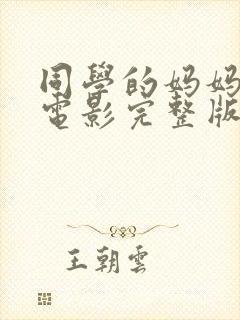 同學的妈妈
電影完整版
王朝雲